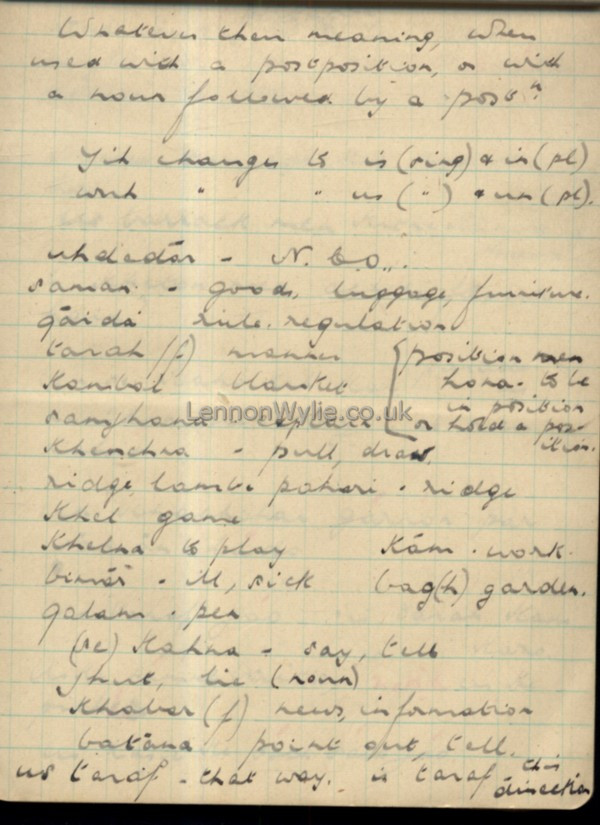 Whatever then meaning, when
used with a postposition, or with
a noun followed by a postn.
Yih changes to is (sing) & in (pl)
woh " " us ( " ) & un (pl).
uhdedār - N.C.O.
saman - goods, luggage, furniture.
qāida rule, regulation
tarah (f) manner
kambal blanket
samjhana - explain
{position men
hona - to be
in position
or hold a pos-
ition.
Khenchna - pull, draw.
ridge, lambi pahari - ridge
Khel game
Khelna to play Kām - work.
bimār - ill, sick bag(h) garden.
qalam - pen
(se) Kahna - say, tell
jhut, lie (noun)
Khabar (f) news, information
batāna point out, tell.
us taraf - that way. is taraf this
direction
LennonWylie.co.uk